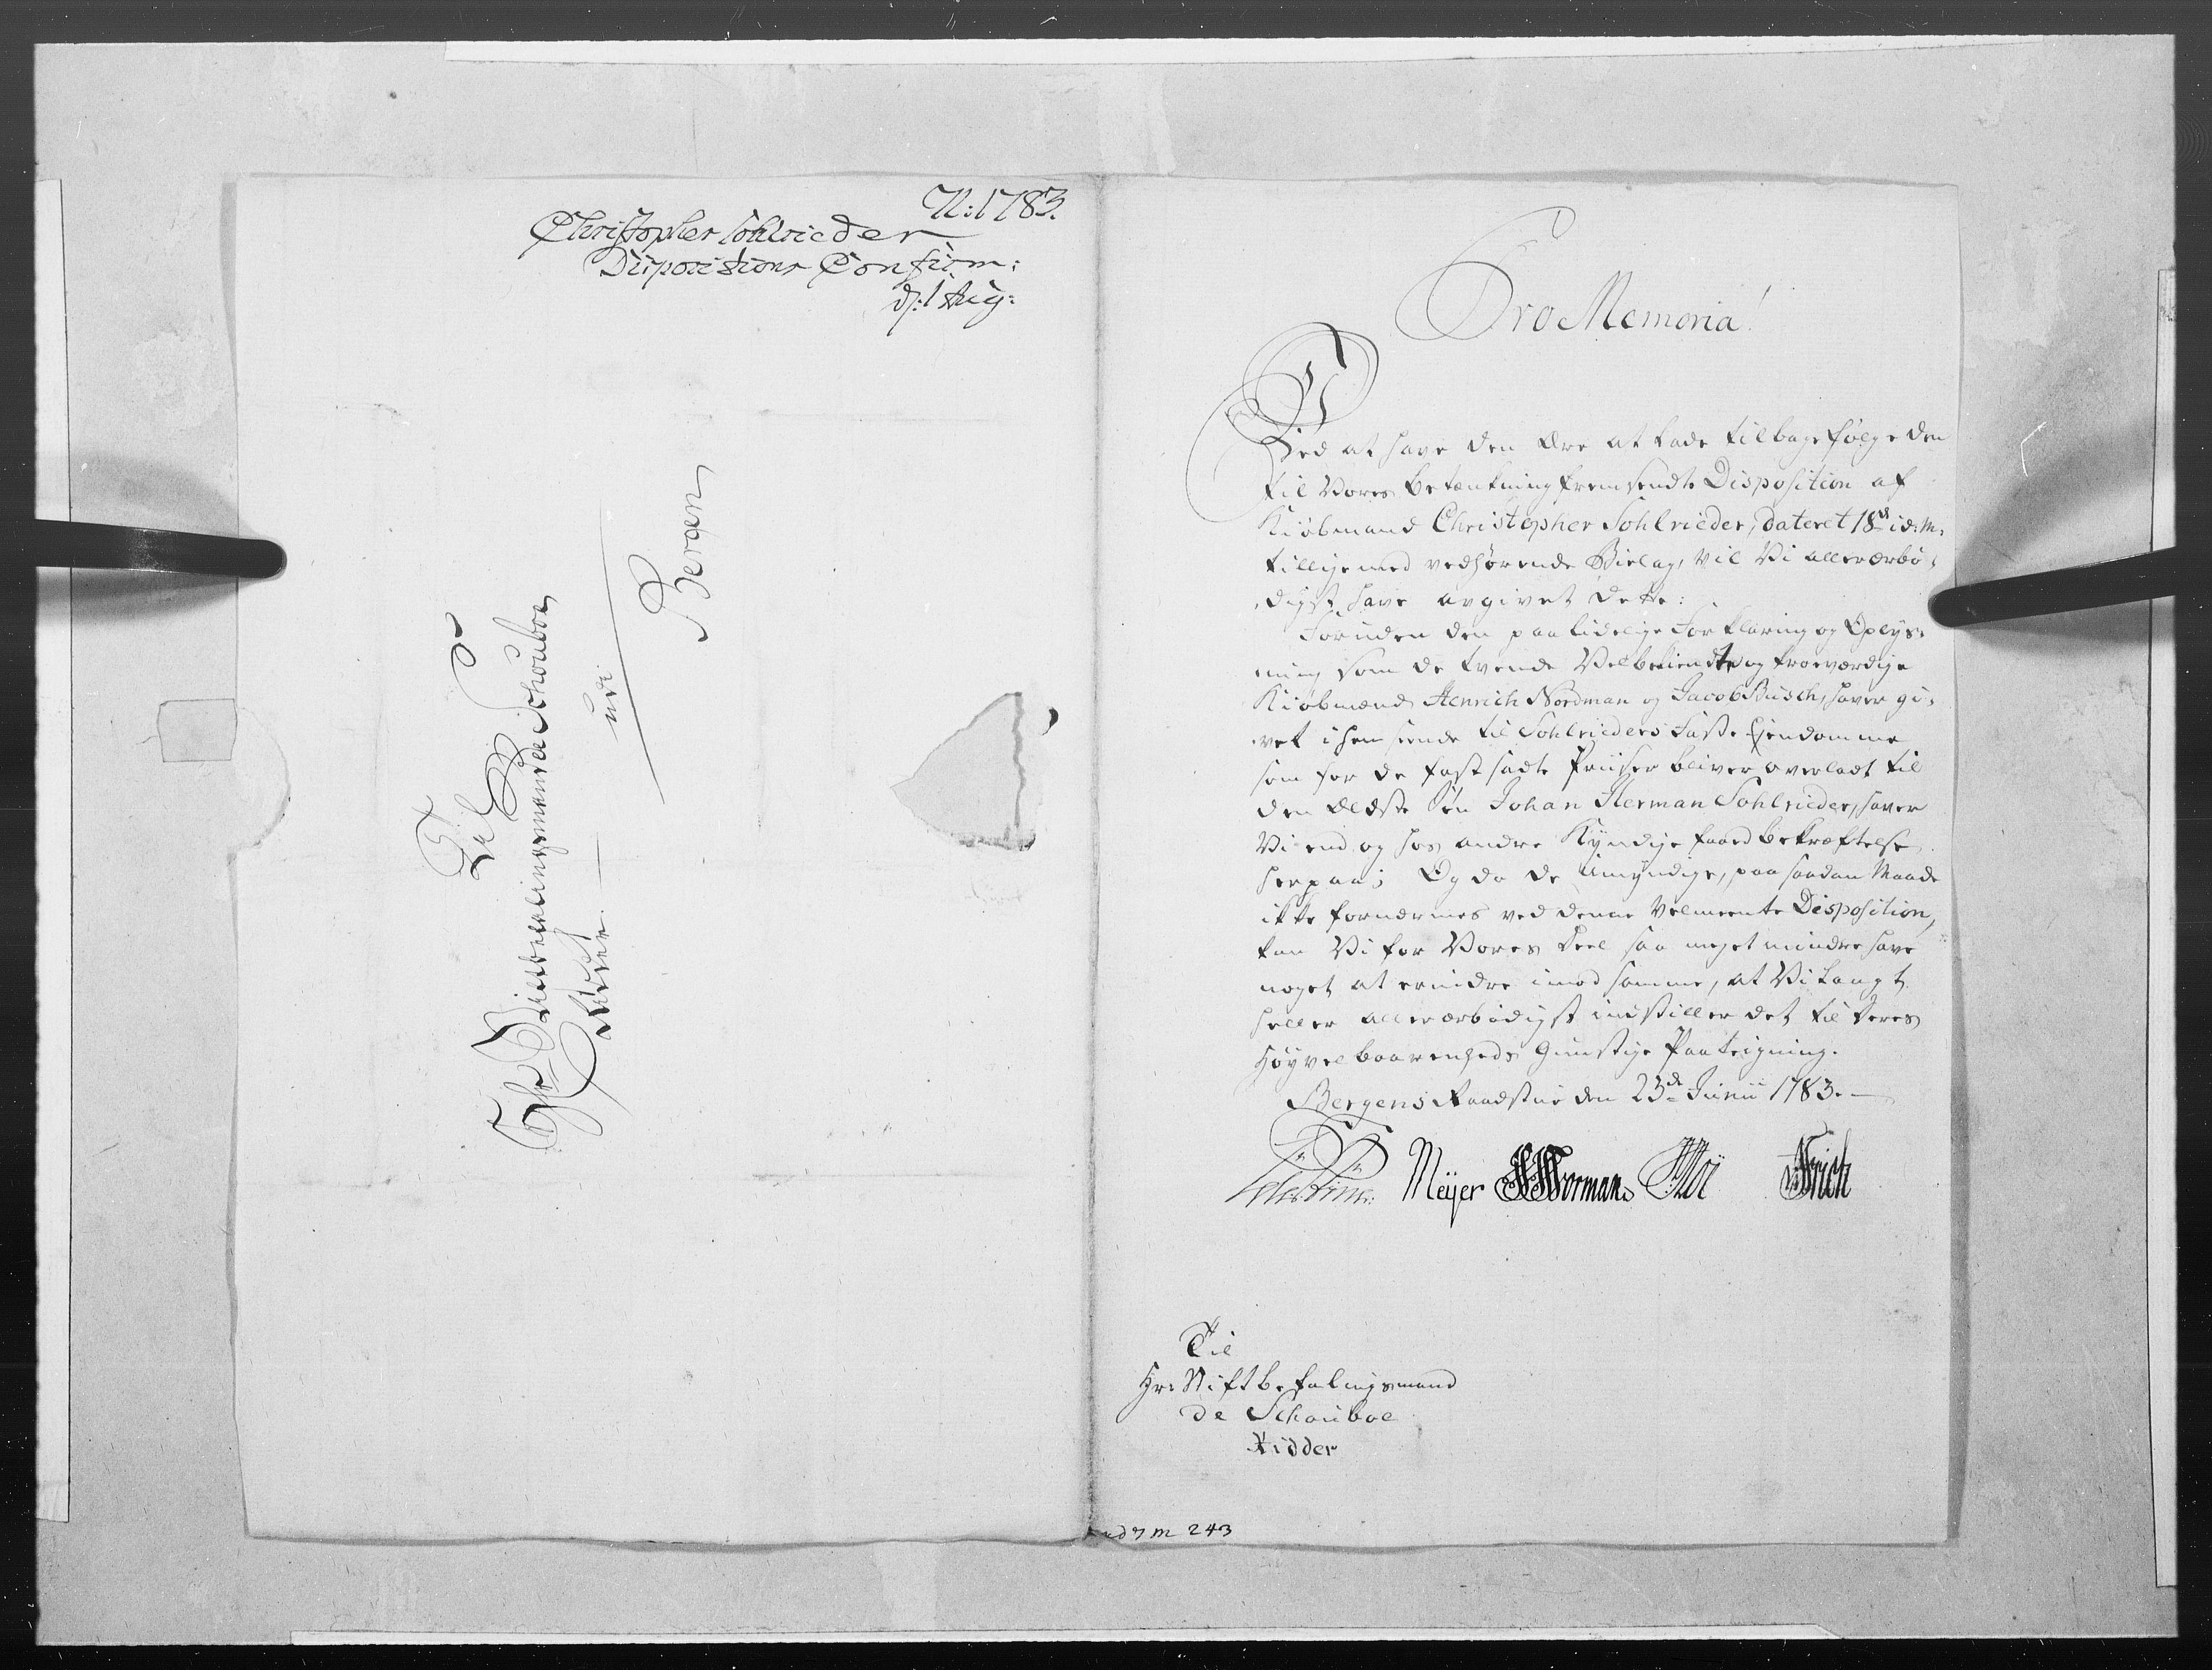 N: 1783.
Christopher Sohlrieder
Dispositions Confirm:
d: 1 Aug:
Til
Hr Stiftbefalingsmand de Schouboe
Ridder
udi
Bergen
Pro Memoria!
Ved at have den Ære at lade tilbage følge den
til Vores betænkning fremsendte Disposition af
Kiøbmand Christopher Sohlrieder, dateret 18de id: M:
tilligemed vedhørende Bielag, vil Vi allerærbø-
digst have avgivet dette:
Foruden den paalidelige Forklaring og Oplys-
ning som de tvende Velbekiendte og troværdige
Kiøbmænd Henrich Nordman og Jacob Busch, haver gi-
vet i henseende til Sohlrieders Faste Ejendomme
som for de fastsadte Priiser bliver overladt til
den Ældste Søn Johan Herman Sohlrieder, haver
Vi end og hos andre Kyndige faaed bekræftelse
herpaa; Og da de Umyndige, paa saadan Maade
ikke fornærmes ved denne Velmeente Disposition,
kan Vi for Vores Deel saa meget mindre have
noget at erindre imod samme, at Vi langt
heller allerærbødigst indstiller det til Deres
Høyvelbaarenheds Gunstige Paategning.
Bergens Raadstue den 23de Junii 1783.
Meyer Norman Frich
Til
Hr: Stiftbefalingsmand
de Schouboe
Ridder
243